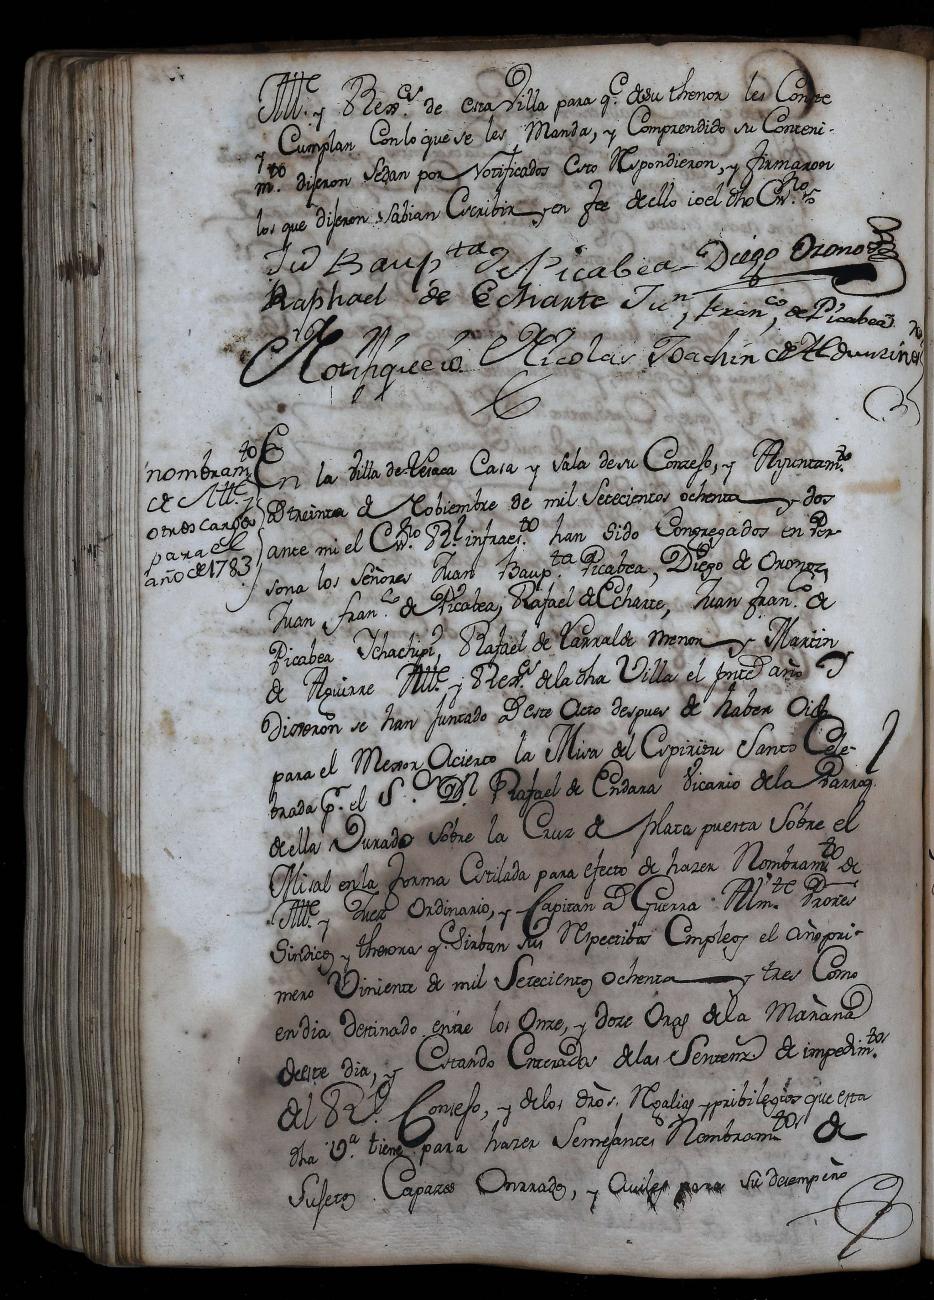 Alle. y Rexes. de esta Villa para qe. de su thenor les Conste
y Cumplan Con lo que se les Manda, y Comprendido su Conteni-
mto. dijeron Sedan por Notificados Esto Respondieron, y firmaron
los que dijeron sabian Escribir, y en fee de ello io el dho Esno. Rl.
Jn Baupta de Picabea Diego Oronoz
Raphael de Echarte Jun franco, de Picabea
Notifiquelo yo Nicolas Joachin de Aldunzin esno
nombramto
de Alle. y
otros cargos
para el
año de 1783
En la Villa de Lesaca Casa y Sala de su Consejo, y Ayuntamto.
a treinta de Nobiembre de mil Setecientos ochenta y dos
ante mi el Esno. Rl. infraesto. han sido Congregados en Per-
sona los Señores Juan Baupta. Picabea, Diego de Oronoz,
Juan franco. de Picabea, Rafael de Echarte, Juan franco. de
Picabea Ychachipi, Rafael de Yarralde menor y Martin
de Aguirre Alle. y Rexes. de la dha Villa el prite año y
Dixeron se han Juntado a este Acto despues de haber Oido
para el Mexor Acierto la Misa del Espiritu Santo Cele-
brada pr. el Sor. Dn. Rafael de Endara Vicario de la Parroql.
de ella Jurado Sobre la Cruz de plata puesta Sobre el
Misal en la forma Estilada para efecto de hazer Nombramto. de
Alle. y Juez Ordinario, y Capitan a Guerra Almte. Rexores
Sindico y thesoro qe. Sirban sus Respectibos Empleos el año pri-
mero Viniente de mil Setecientos ochenta y tres Como
en dia destinado entre los Onze, y doze Oras de la Mañana
de este dia, y Estando Enterados de las Sentenzs. de impedimtos.
del Rl. Consejo, y de los dros. Regalias y pribilegios que esta
dha Va. tiene para hazer Semejantes Nombramtos. de
Sujetos Capazes Onrrados, y Aviles para su desempeño